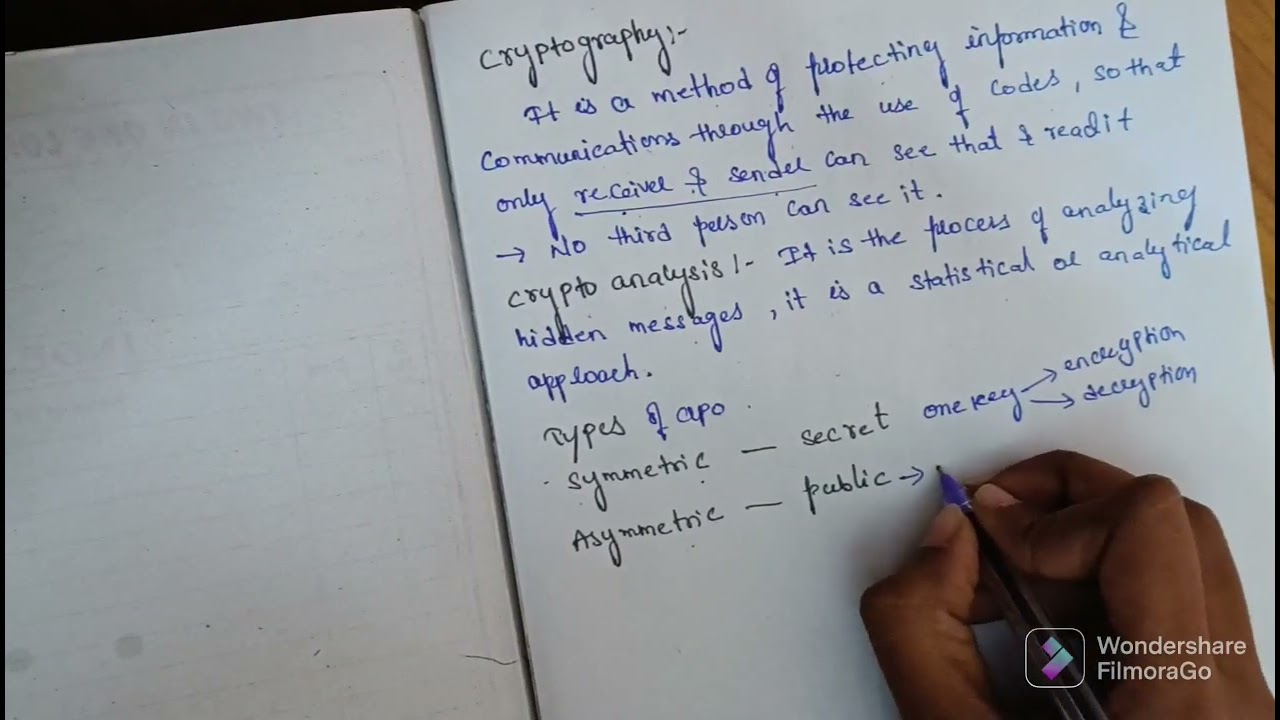 Cryptography:-
It is a method of protecting information &
communications through the use of codes, so that
only receiver & sender can see that & read it
→ No third person can see it.
Crypto analysis:- It is the process of analyzing
hidden messages, it is a statistical or analytical
approach.
Types of cryo
· Symmetric — secret one key → encryption
→ decryption
Asymmetric — public →
Wondershare
FilmoraGo